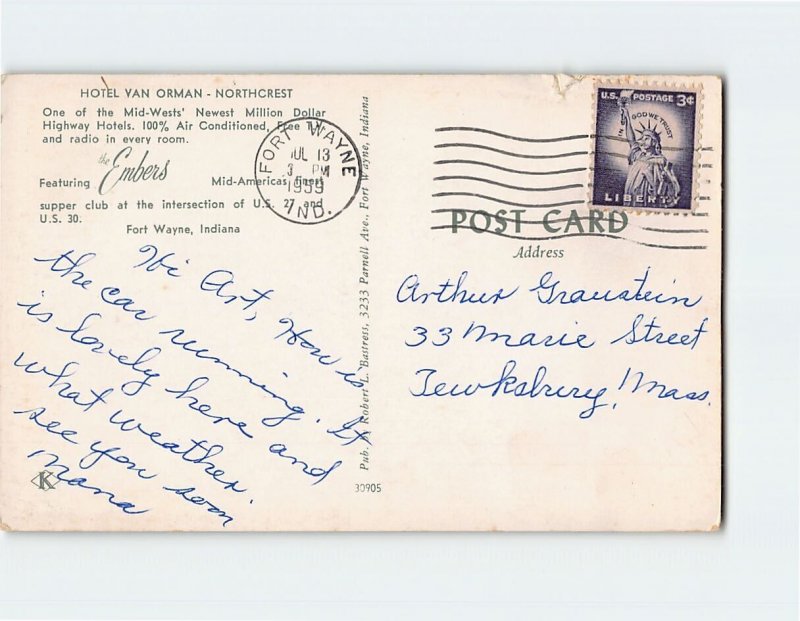 HOTEL VAN ORMAN - NORTHCREST
One of the Mid-Wests' Newest Million Dollar
Highway Hotels. 100% Air Conditioned, Free TV
and radio in every room.
Featuring the Embers Mid-Americas finest
supper club at the intersection of U.S. 27 and
U.S. 30.
Fort Wayne, Indiana
Hi Art, How is
the car running. It
is lovely here and
what weather.
see you soon
Mana
K
Pub. by Robert L. Bastress, 3233 Parnell Ave., Fort Wayne, Indiana
30905
FORT WAYNE
JUL 13
3 PM
1959
IND.
U.S. POSTAGE 3¢
IN GOD WE TRUST
LIBERTY
POST CARD
Address
Arthur Graustein
33 Marie Street
Tewksbury, Mass.